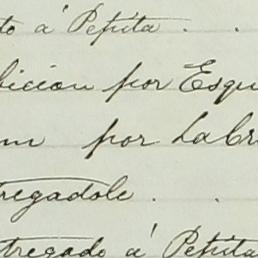 to á Pepita . .
bicion por Esqu
m por La Cr
tregadole . .
tregado á Pepita